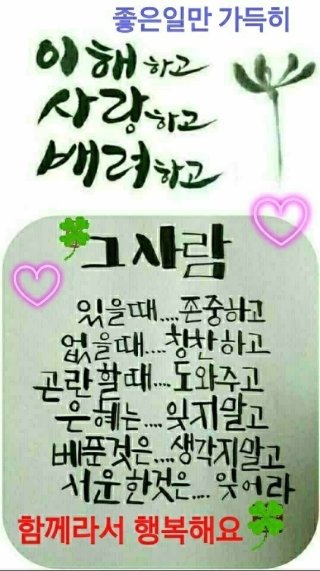 좋은일만 가득히
이해하고
사랑하고
배려하고
그사람
있을때....존중하고
없을때....칭찬하고
곤란할때....도와주고
은혜는....잊지말고
베푼것은....생각지말고
서운한것은....잊어라
함께라서 행복해요